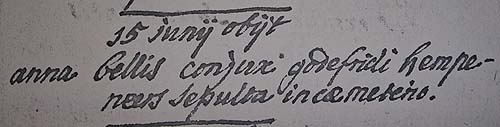 15 junij obijt
anna bellis conjux godefridi hempe-
neers sepulta in cæmeterio.